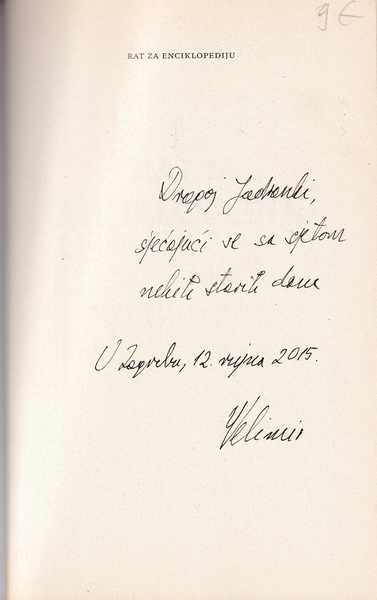 9 €
RAT ZA ENCIKLOPEDIJU
Dragoj Jadranki,
sjećajući se sa sjetom
nekih starih dana
U Zagrebu, 12. rujna 2015.
Velimir